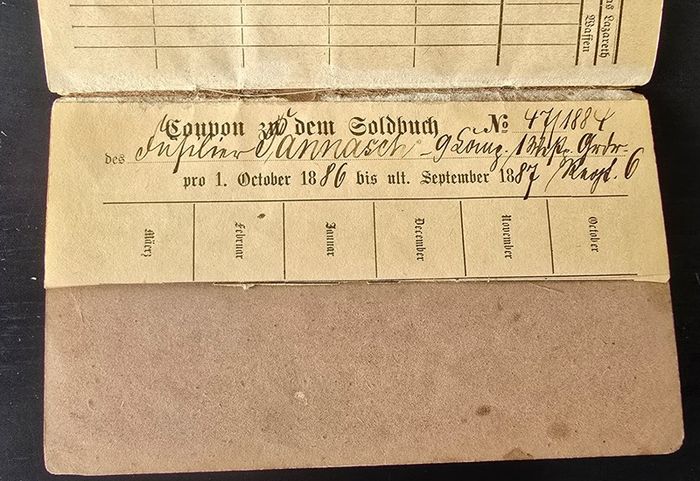 as Lazareth
Waffen
Coupon zu dem Soldbuch № 47/1884
des Füsilier Jannasch 9 Comp. 1 Westpr. Grdr.
pro 1. October 1886 bis ult. September 1887 Regt. 6
März
Februar
Januar
December
November
October